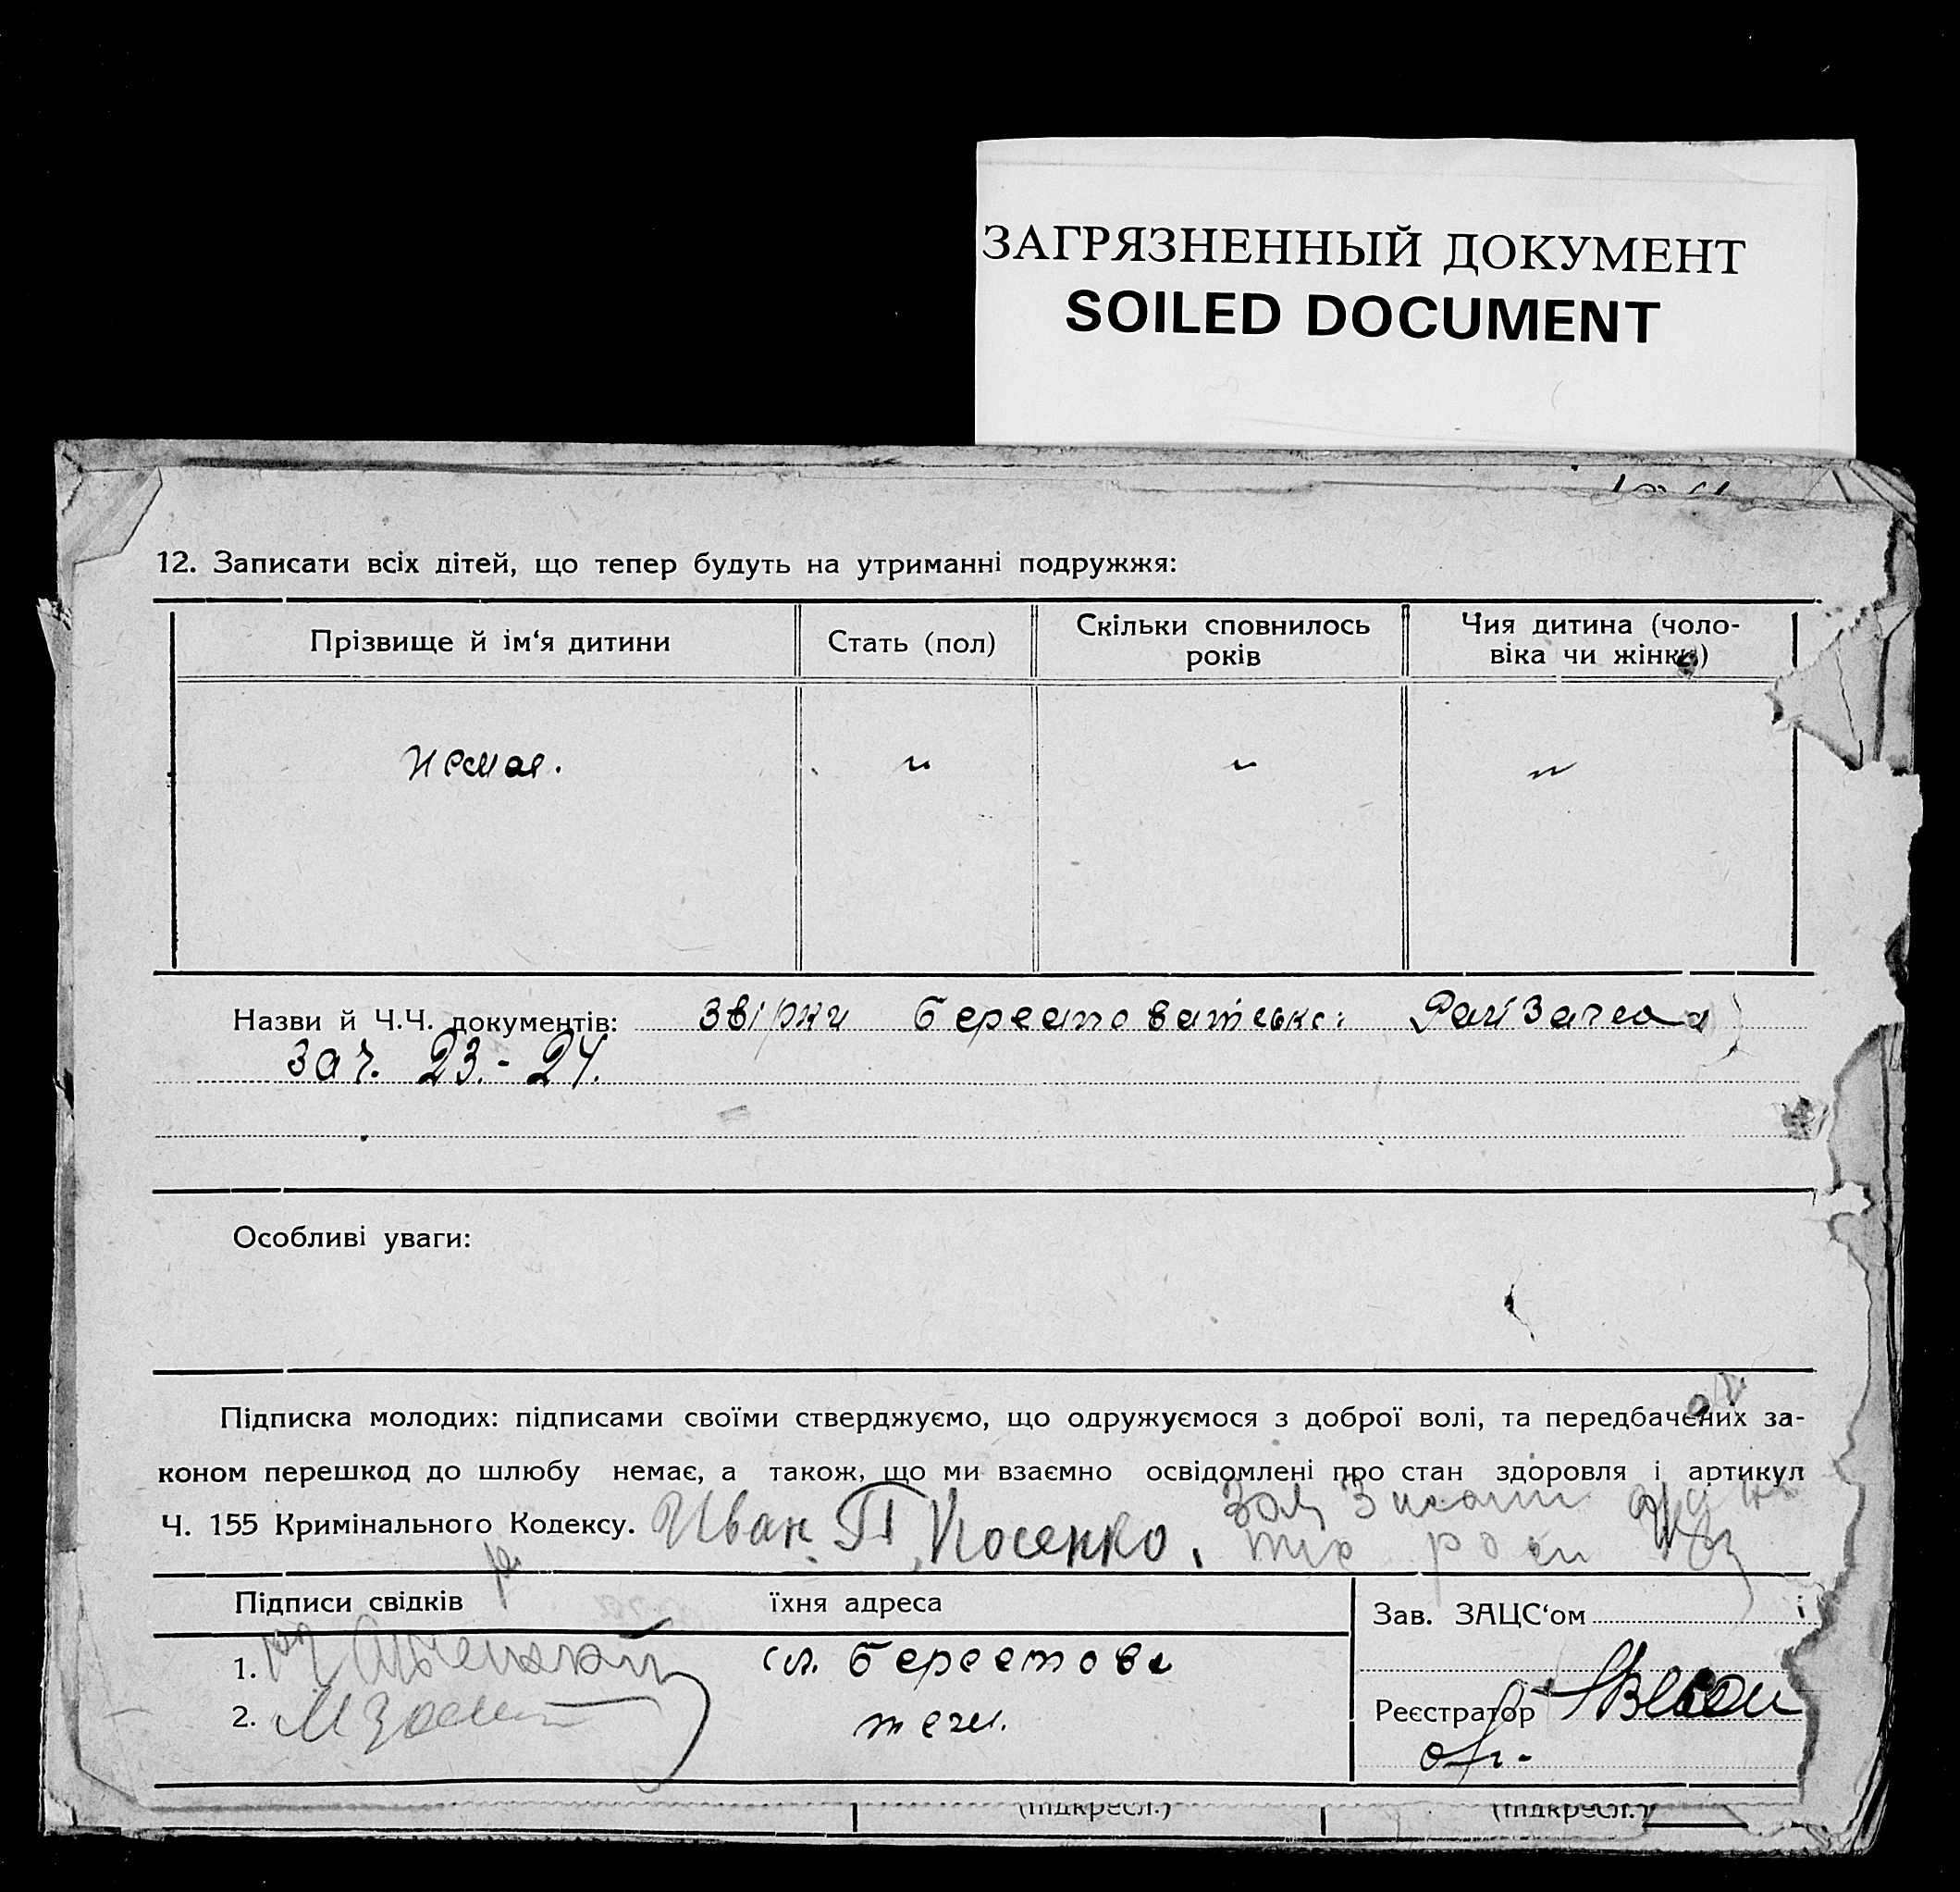 ЗАГРЯЗНЕННЫЙ ДОКУМЕНТ
SOILED DOCUMENT
12. Записати всіх дітей, що тепер будуть на утриманні подружжя:
Прізвище й ім‘я дитини Стать (пол) Скільки сповнилось років Чия дитина (чоло-віка чи жінки)
немає. „ „ „
Назви й Ч.Ч. документів: звірки
зач. 23.- 24.
Особливі уваги:
Підписка молодих: підписами своїми стверджуємо, що одружуємося з доброї волі, та передбачених за-
коном перешкод до шлюбу немає, а також, що ми взаємно освідомлені про стан здоровля і артикул
Ч. 155 Кримінального Кодексу. Иван П Косенко.
Підписи свідків їхня адреса
Зав. ЗАЦС‘ом
1. сл. Берестова
2.
Реєстратор
(підкресл.) (підкресл.)